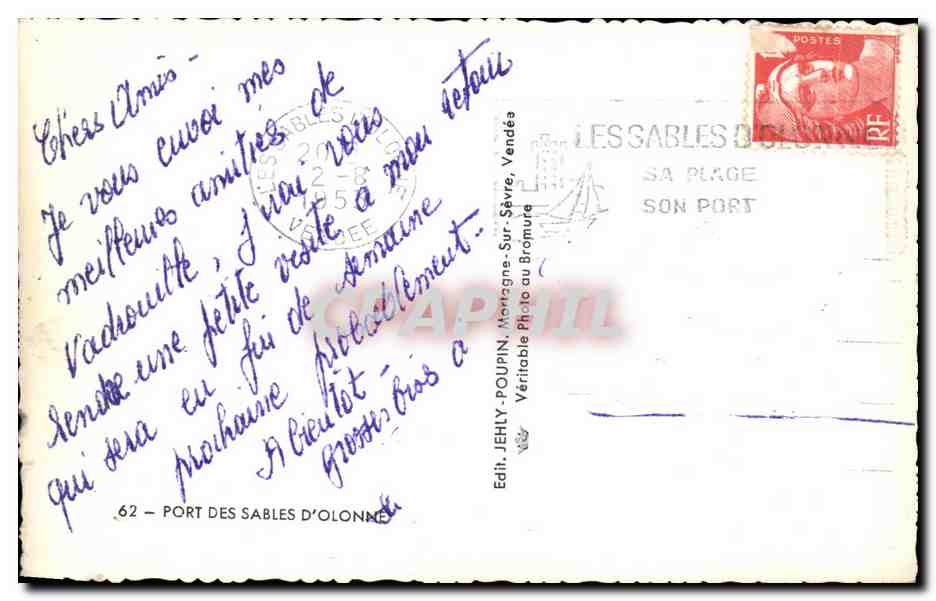 Chers Amis -
Je vous envoi mes
meilleures amitiés de
Vadrouille, J'irai vous
rendre une petite visite à mon retour
qui sera en fin de semaine
prochaine probablement -
A bientôt -
Grosses bises à
62 — PORT DES SABLES D'OLONNE
Edit. JEHLY-POUPIN, Mortagne-Sur-Sèvre, Vendée
Véritable Photo au Bromure
LES SABLES D'OLONNE
2-8
VENDEE
LES SABLES D'OLONNE
SA PLAGE
SON PORT
POSTES
RF
CPAPHIL